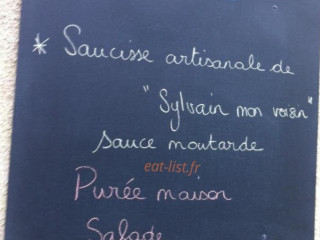 * Saucisse artisanale de
"Sylvain mon voisin"
sauce moutarde
eat-list.fr
Purée maison
Salade